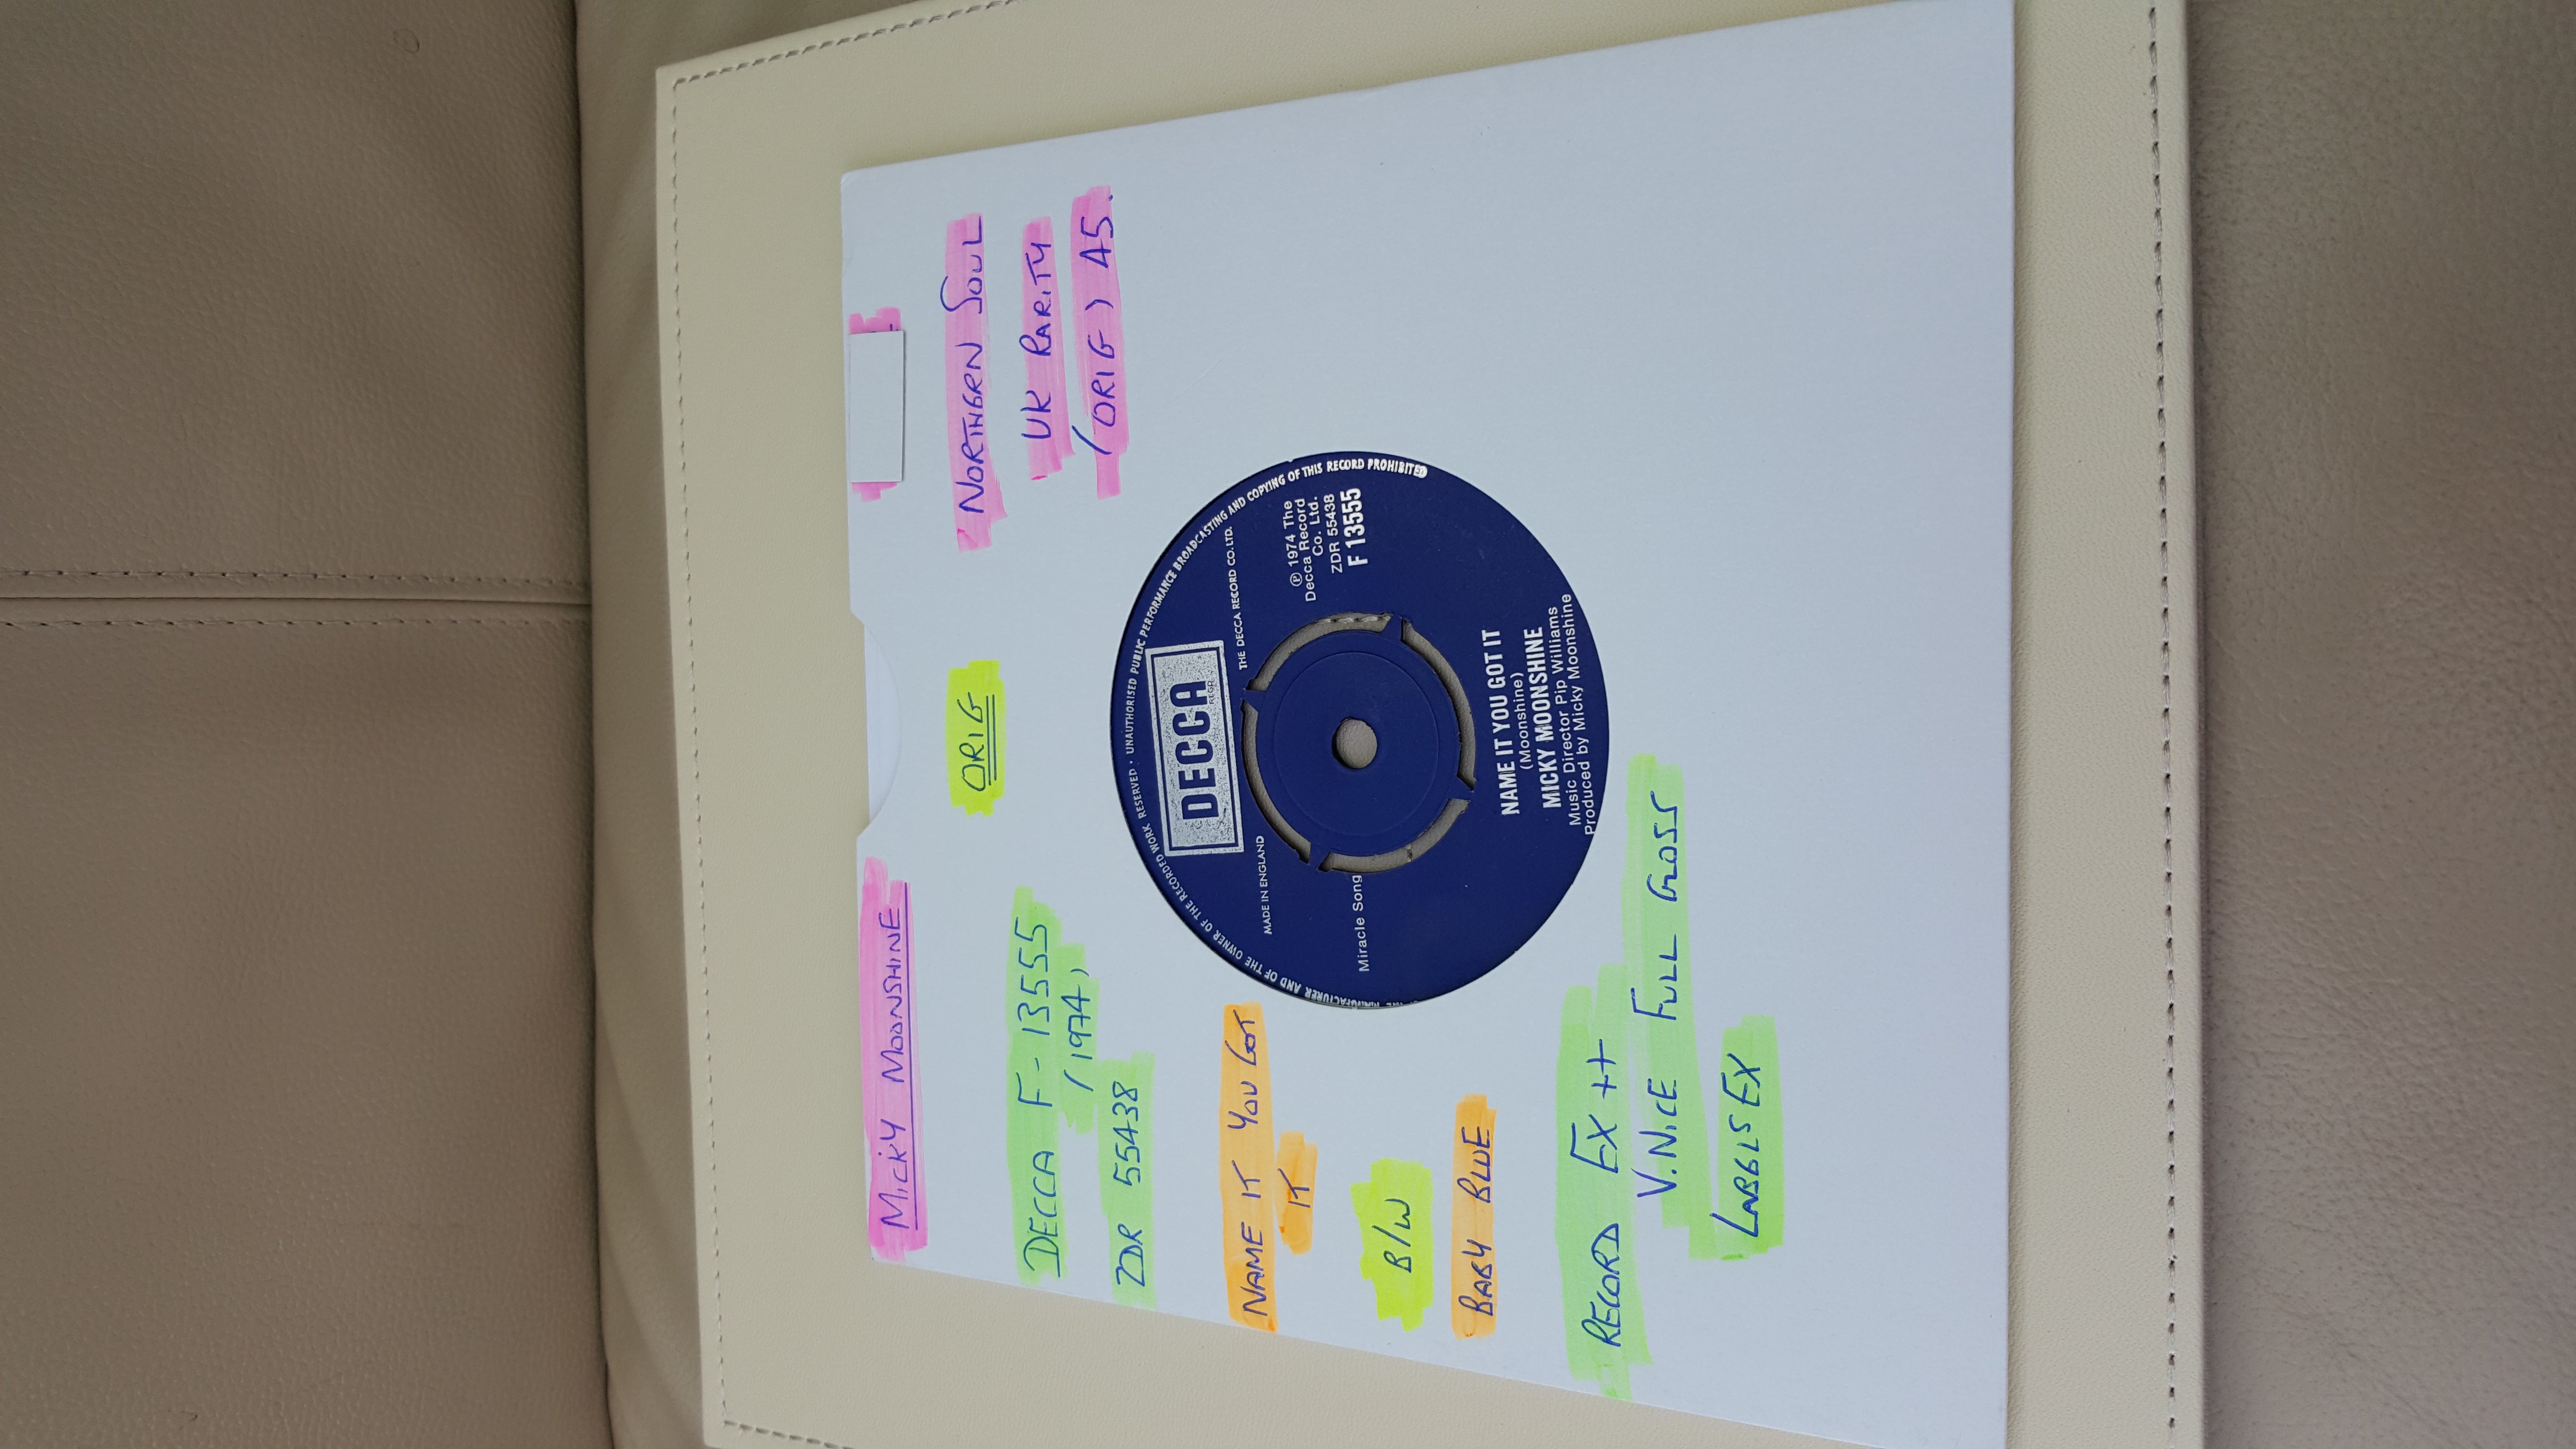 MICKY MOONSHINE
ORIG
NORTHERN SOUL
UK RARITY
(ORIG) 45.
DECCA F-13555
(1974)
ZDR 55438
NAME IT YOU GOT
IT
B/W
BABY BLUE
RECORD EX++
V.NICE FULL GLOSS
LABELS EX
OF THE MANUFACTURER AND OF THE OWNER OF THE RECORDED WORK RESERVED · UNAUTHORISED PUBLIC PERFORMANCE BROADCASTING AND COPYING OF THIS RECORD PROHIBITED
DECCA
REGD
MADE IN ENGLAND
THE DECCA RECORD CO. LTD.
Miracle Song
℗ 1974 The
Decca Record
Co. Ltd.
ZDR 55438
F 13555
NAME IT YOU GOT IT
(Moonshine)
MICKY MOONSHINE
Music Director Pip Williams
Produced by Micky Moonshine